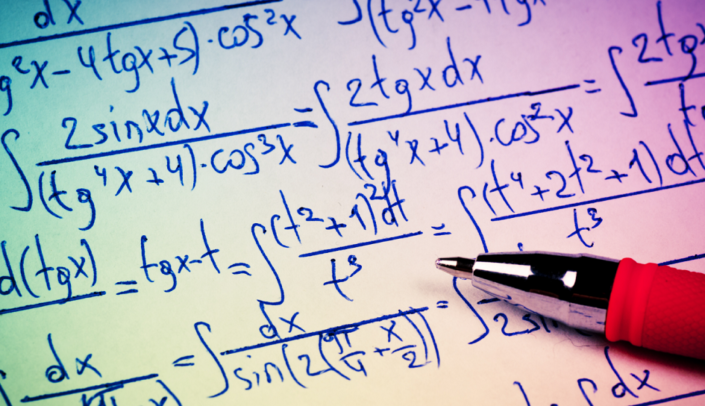 dx
g²x-4tgx+5)·cos²x ∫(tg²x-
∫ 2sinxdx / (tg⁴x+4)·cos³x = ∫ 2tgxdx / (tg⁴x+4)·cos²x = ∫ 2tg
d(tgx) = tgx-t = ∫ (t²+1)²dt / t³ = ∫ (t⁴+2t²+1)dt / t³
dx = ∫ dx / sin(2(π/4+x/2)) = ∫ / 2sin
∫ dx